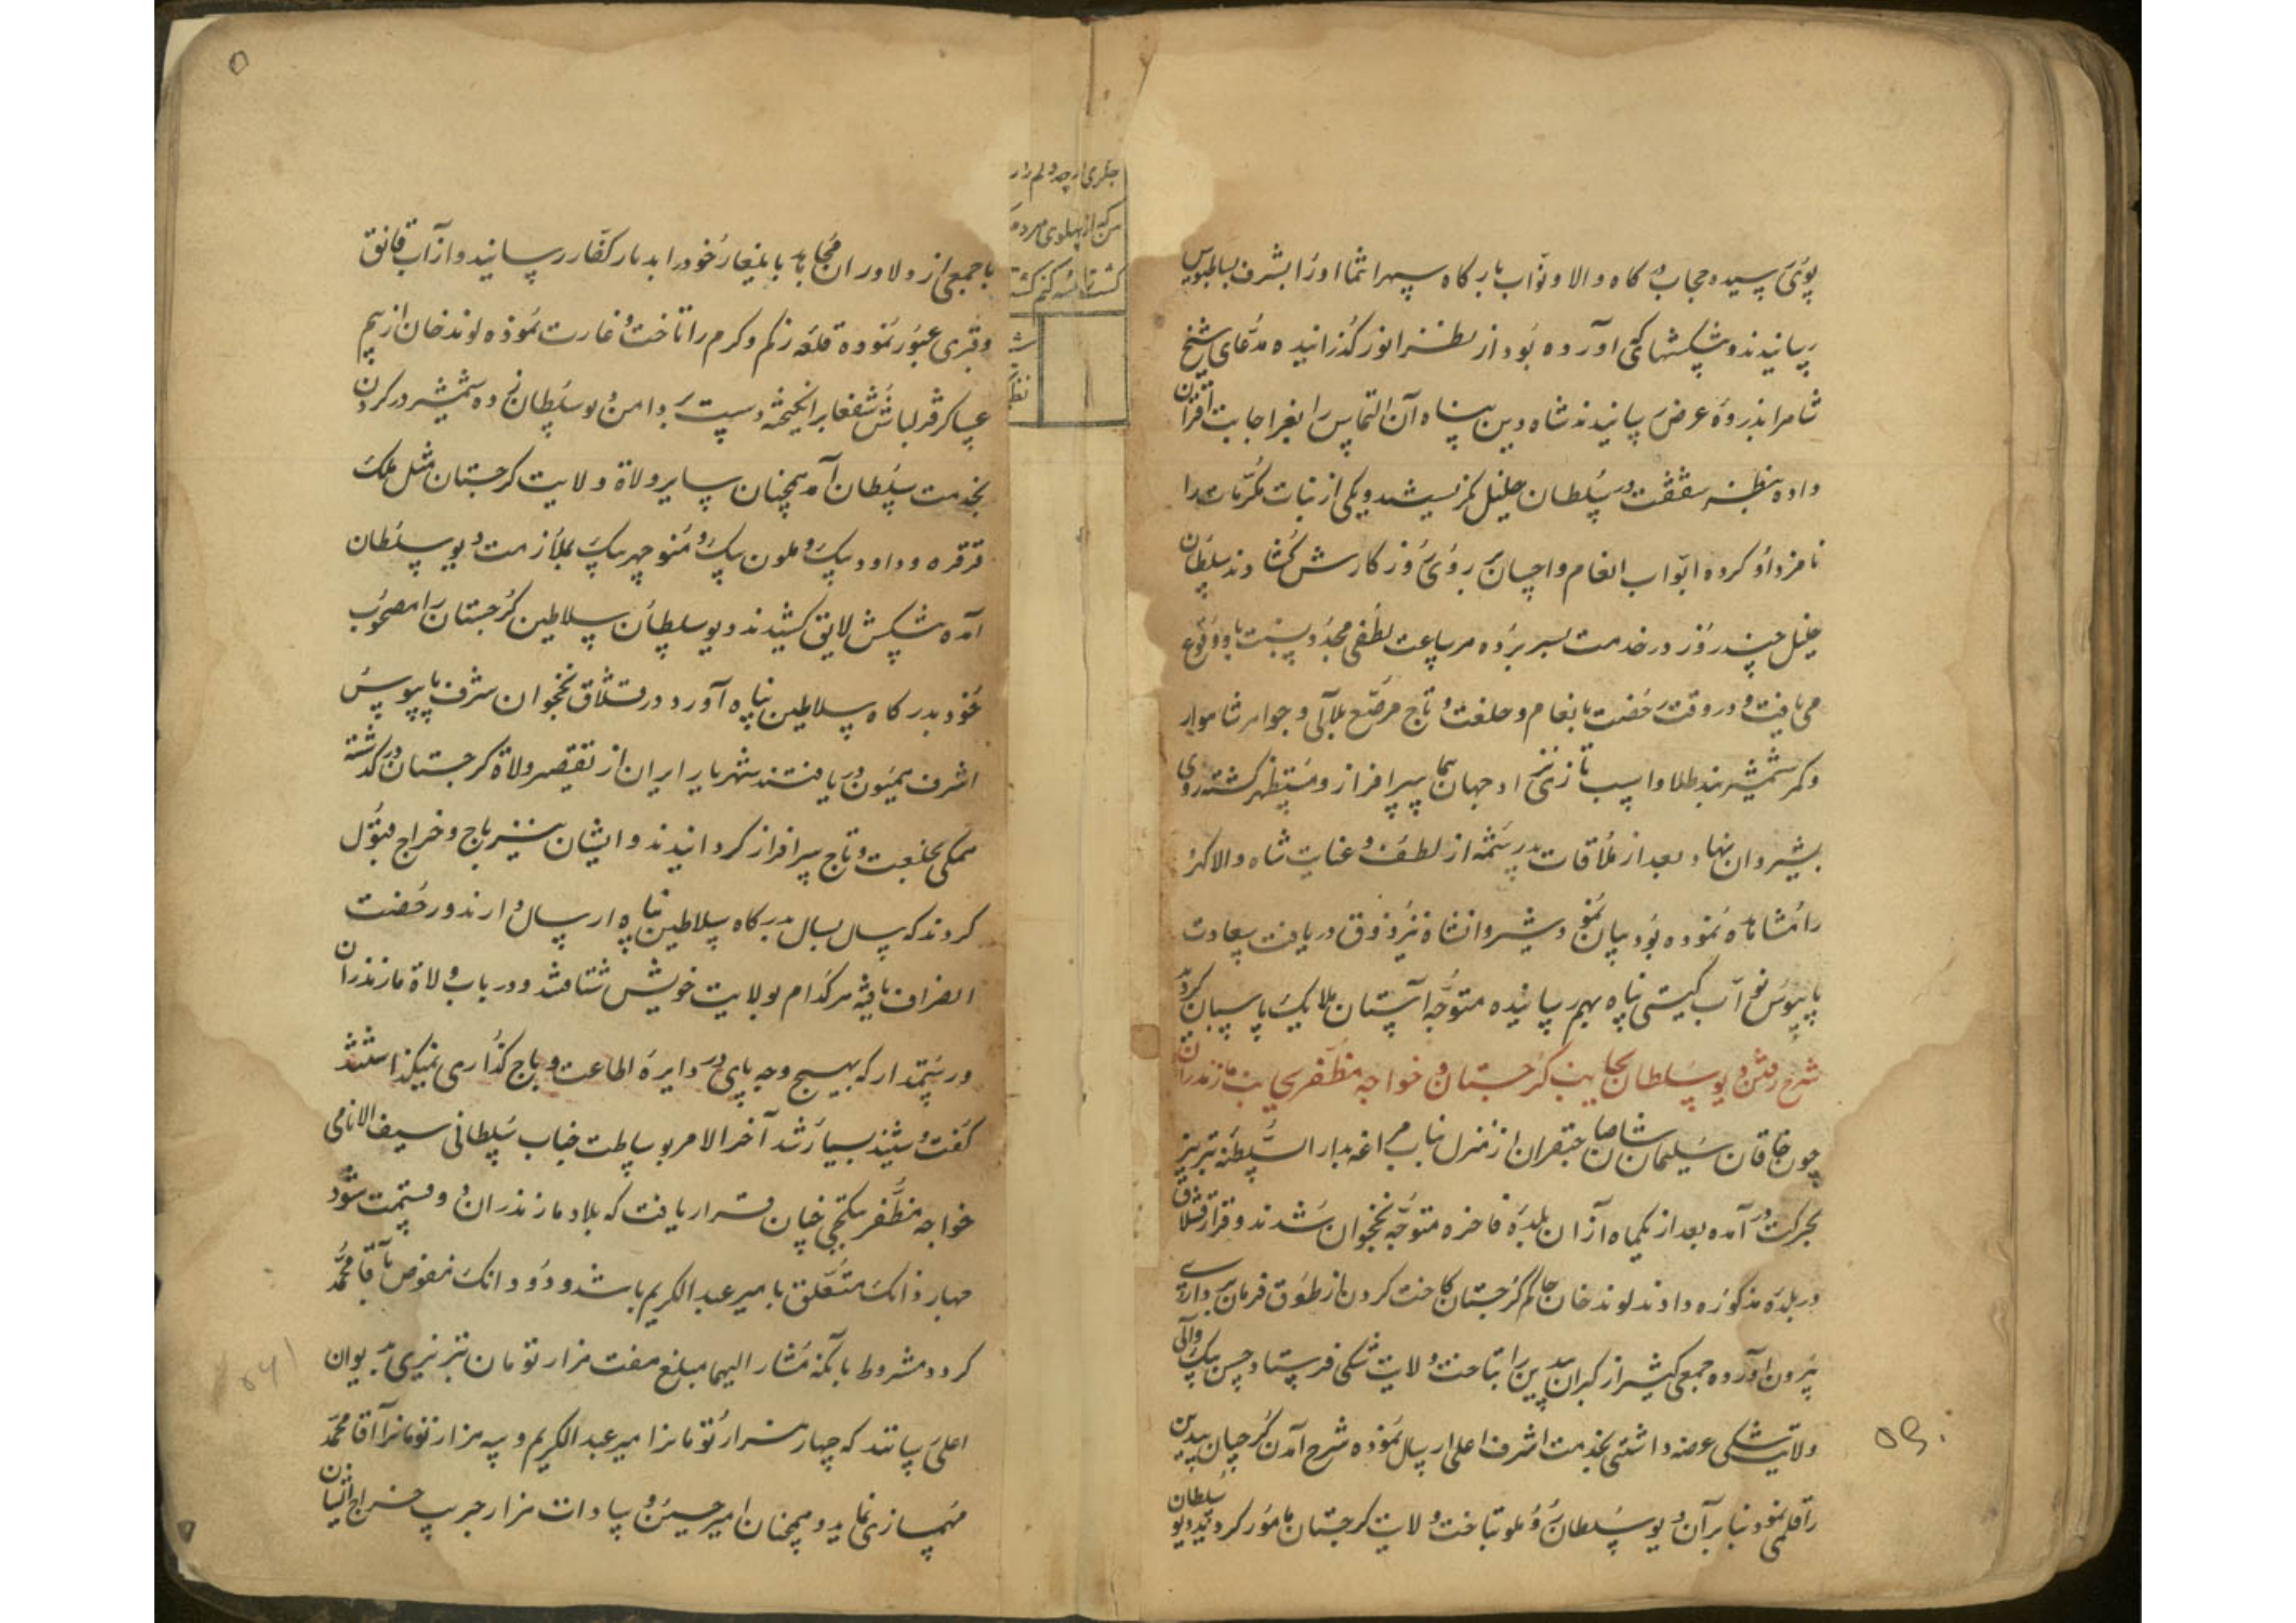 بوسی رسیده حجاب درگاه والا و نواب بارگاه سپهر انتما او را بشرف بساطبوس
رسانیدند و پیشکشهائی که آورده بود از نظر انور گذرانیده مدعای شیخ
شاه را بذروه عرض رسانیدند شاه دین پناه آن التماس را بعز اجابت اقتران
داده بنظر شفقت در سلطان خلیل نگریستند و یکی از بنات مکرمات را
نامزد او کرده ابواب انعام و احسان بر روی روزگارش گشادند سلطان
خلیل چند روز در خدمت بسر برده هر ساعت لطفی مجدد نسبت باو وقوع
می یافت و در وقت رخصت بانعام و خلعت و تاج مرصع بلآلی و جواهر شاهوار
و کمر شمشیر بند طلا و اسب تازی نژاد جهان پیما سرافراز و مستظهر گشته روی
بشیروان نهاد و بعد از ملاقات پدر شمه از لطف و عنایت شاه والا گهر
را مشاهده نموده بود بیان نمود و شیروانشاه نیز ذوق دریافت سعادت
پایبوس نواب گیتی پناه بهم رسانیده متوجه آستان ملایک پاسبان گردید
شرح رفتن دیو سلطان بجانب گرجستان و خواجه مظفر بجانب مازندران
چون خاقان سلیمان شان صاحبقران از منزل ناب مراغه بدار السلطنه تبریز
بحرکت در آمده بعد از یکماه از آن بلده فاخره متوجه نخجوان شدند و قرار قشلاق
در بلده مذکوره دادند لوند خان حاکم گرجستان کاخت گردن از طوق فرمان برداری
بیرون آورده جمعی کثیر از گبران بیدین را بتاخت ولایت شکی فرستاد حسن بیک والی
ولایت شکی عرضه داشتی بخدمت اشرف اعلی ارسال نموده شرح آمدن گرجیان بیدین
را قلمی نمود بنابر آن دیو سلطان روملو بتاخت ولایت گرجستان مامور گردید دیو سلطان
با جمعی از دلاوران مجاهد بایلغار خود را بدیار کفار رسانید و از آب قانق
و قبری عبور نموده قلعه زکم و کرم را تاخت و غارت نموده لوند خان از بیم
عساکر قزلباش شفعا برانگیخته دست بدامن دیو سلطان زده شمشیر در گردن
بخدمت سلطان آمد همچنان سایر ولاة ولایت گرجستان مثل ملک
قرقره و داود بیک و ملون بیک و منوچهر بیک بملازمت دیو سلطان
آمده پیشکش لایق کشیدند دیو سلطان سلاطین گرجستان را مصحوب
خود بدرگاه سلاطین پناه آورد و در قشلاق نخجوان شرف پایبوس
اشرف همیون دریافتند شهریار ایران از تقصیر ولاة گرجستان در گذشته
همگی بخلعت و تاج سرافراز گردانیدند و ایشان نیز باج و خراج قبول
کردند که سال بسال بدرگاه سلاطین پناه ارسال دارند و رخصت
انصراف یافته هر کدام بولایت خویش شتافتند و در باب ولاة مازندران
و رستمدار که بهیچ وجه پای در دایره اطاعت و باج گذاری نمیگذاشتند
گفت و شنید بسیار شد آخر الامر بوساطت جناب سلطانی سیف الانامی
خواجه مظفر بتکچی چنان قرار یافت که بلاد مازندران دو قسمت شود
چهار دانک متعلق بامیر عبدالکریم باشد و دو دانک مفوض بآقا محمد
گردد مشروط بآنکه مشار الیهما مبلغ هفت هزار تومان تبریزی بدیوان
اعلی رسانند که چهار هزار تومانرا میر عبدالکریم و سه هزار تومانرا آقا محمد
مهمسازی نماید و همچنان امیر حسین و سادات هزار جریب خراج آنسان